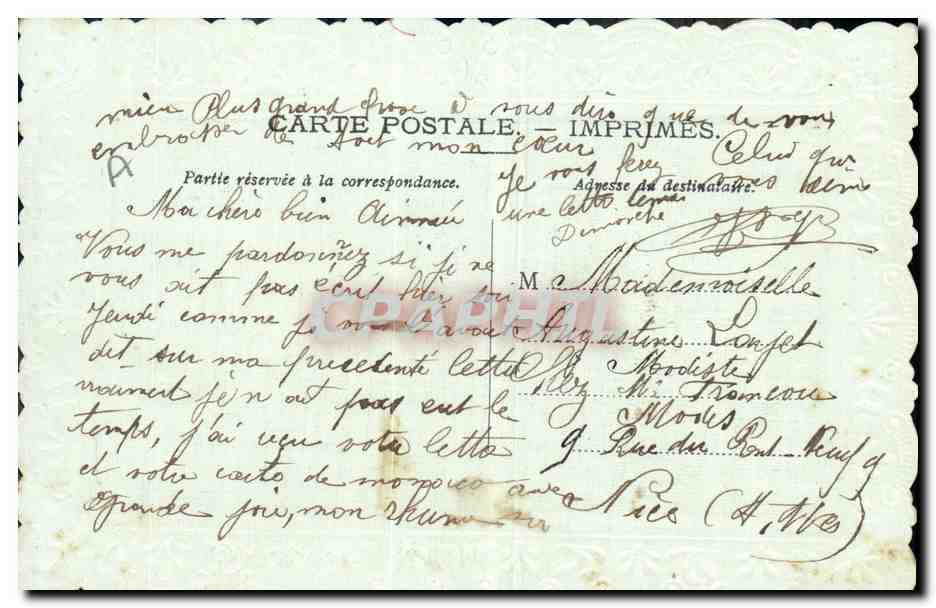 mieu Plus grand chose à vous dire que de vous
embrasser de tout mon cœur
CARTE POSTALE. — IMPRIMÉS.
A
Celui qui
vous aime
Je vous ferez
une lettre
Dimanche
Partie réservée à la correspondance.
Adresse du destinataire.
Ma chère bien Aimmée
Vous me pardonnez si je ne
vous ait pas écrit hier soir
Jeudi comme je vous l'avait
dit sur ma precedente lettre
vraiment je n ait pas eut le
temps, j'ai reçu votre lettre
et votre carte de monaco avec
grande joie, mon rhume
M Mademoiselle
Augustine
Modiste
Chez Me
Modes
9 Rue du Pont-Neuf 9
Nice (A, Mes)
CPAPHIL